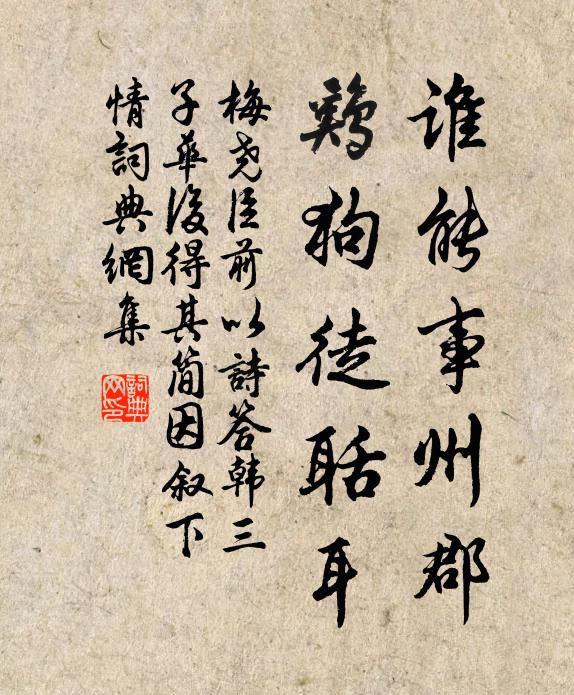 谁能事州郡
鸡狗徒聒耳
梅尧臣前以詩答韩三
子華後得其简因叙下
情詞典網集
詞典网印